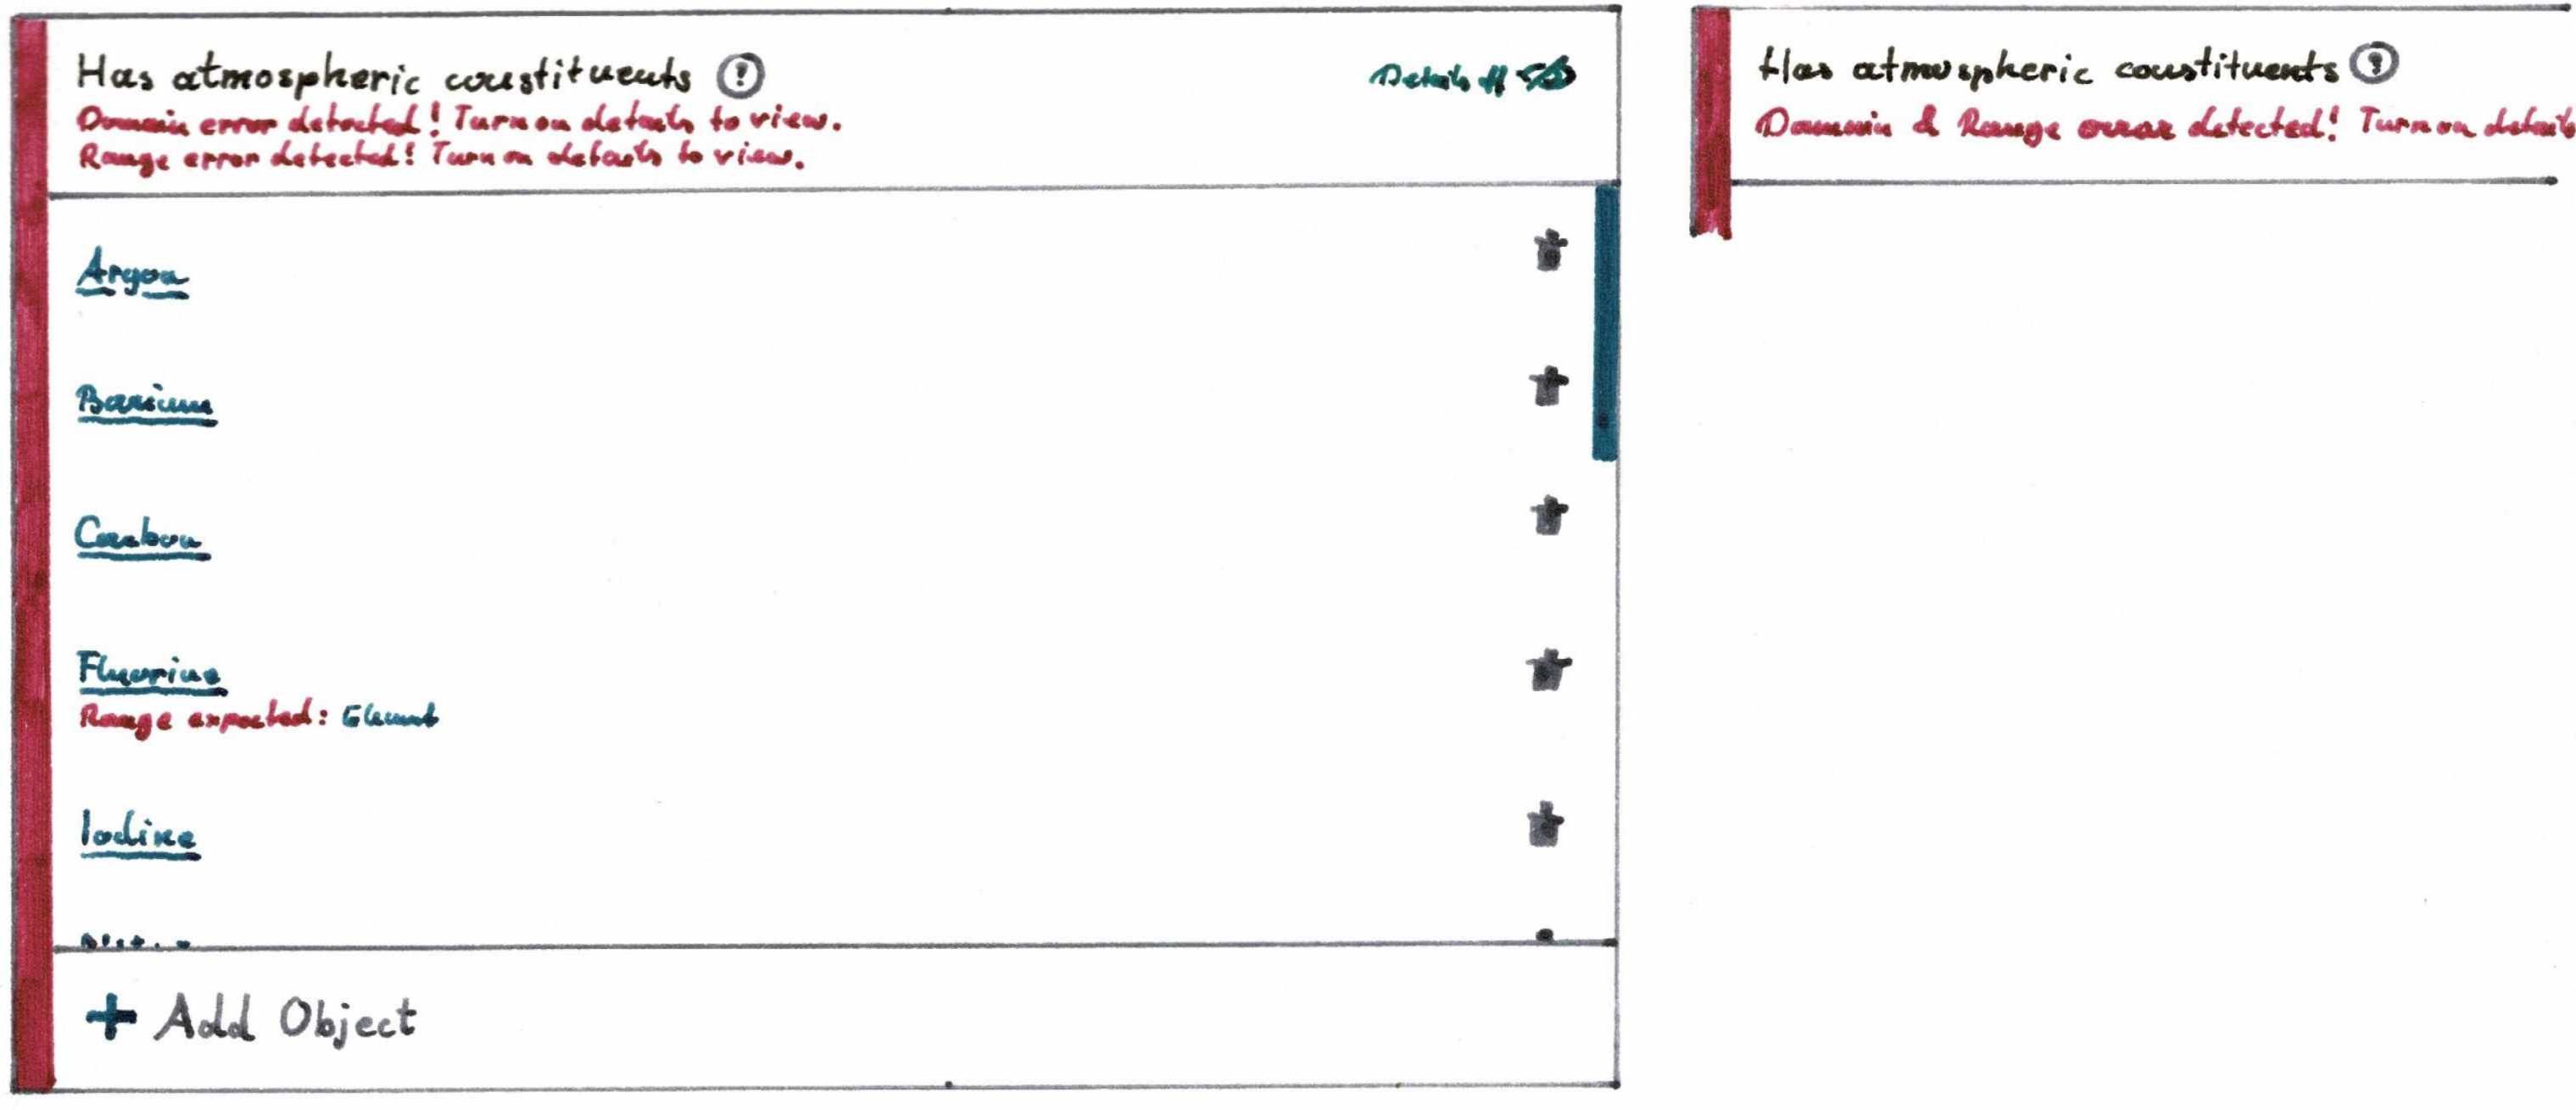 Has atmospheric constituents ?
Details off
Domain error detected! Turn on details to view.
Range error detected! Turn on details to view.
Argon
Barium
Carbon
Fluorine
Range expected: Element
Iodine
+ Add Object
Has atmospheric constituents ?
Domain & Range error detected! Turn on details